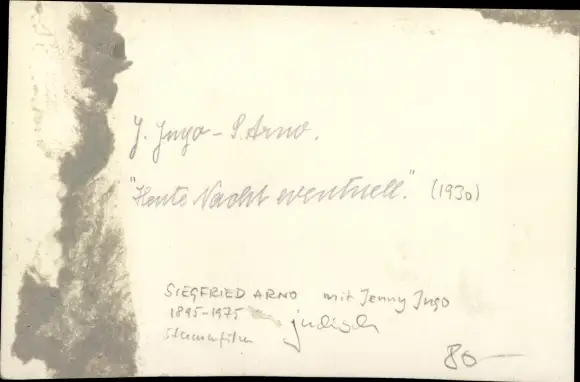 J. Jugo - S. Arno.
"Heute Nacht eventuell." (1930)
SIEGFRIED ARNO mit Jenny Jugo
1895-1975 jüdisch
Stummfilm
80—